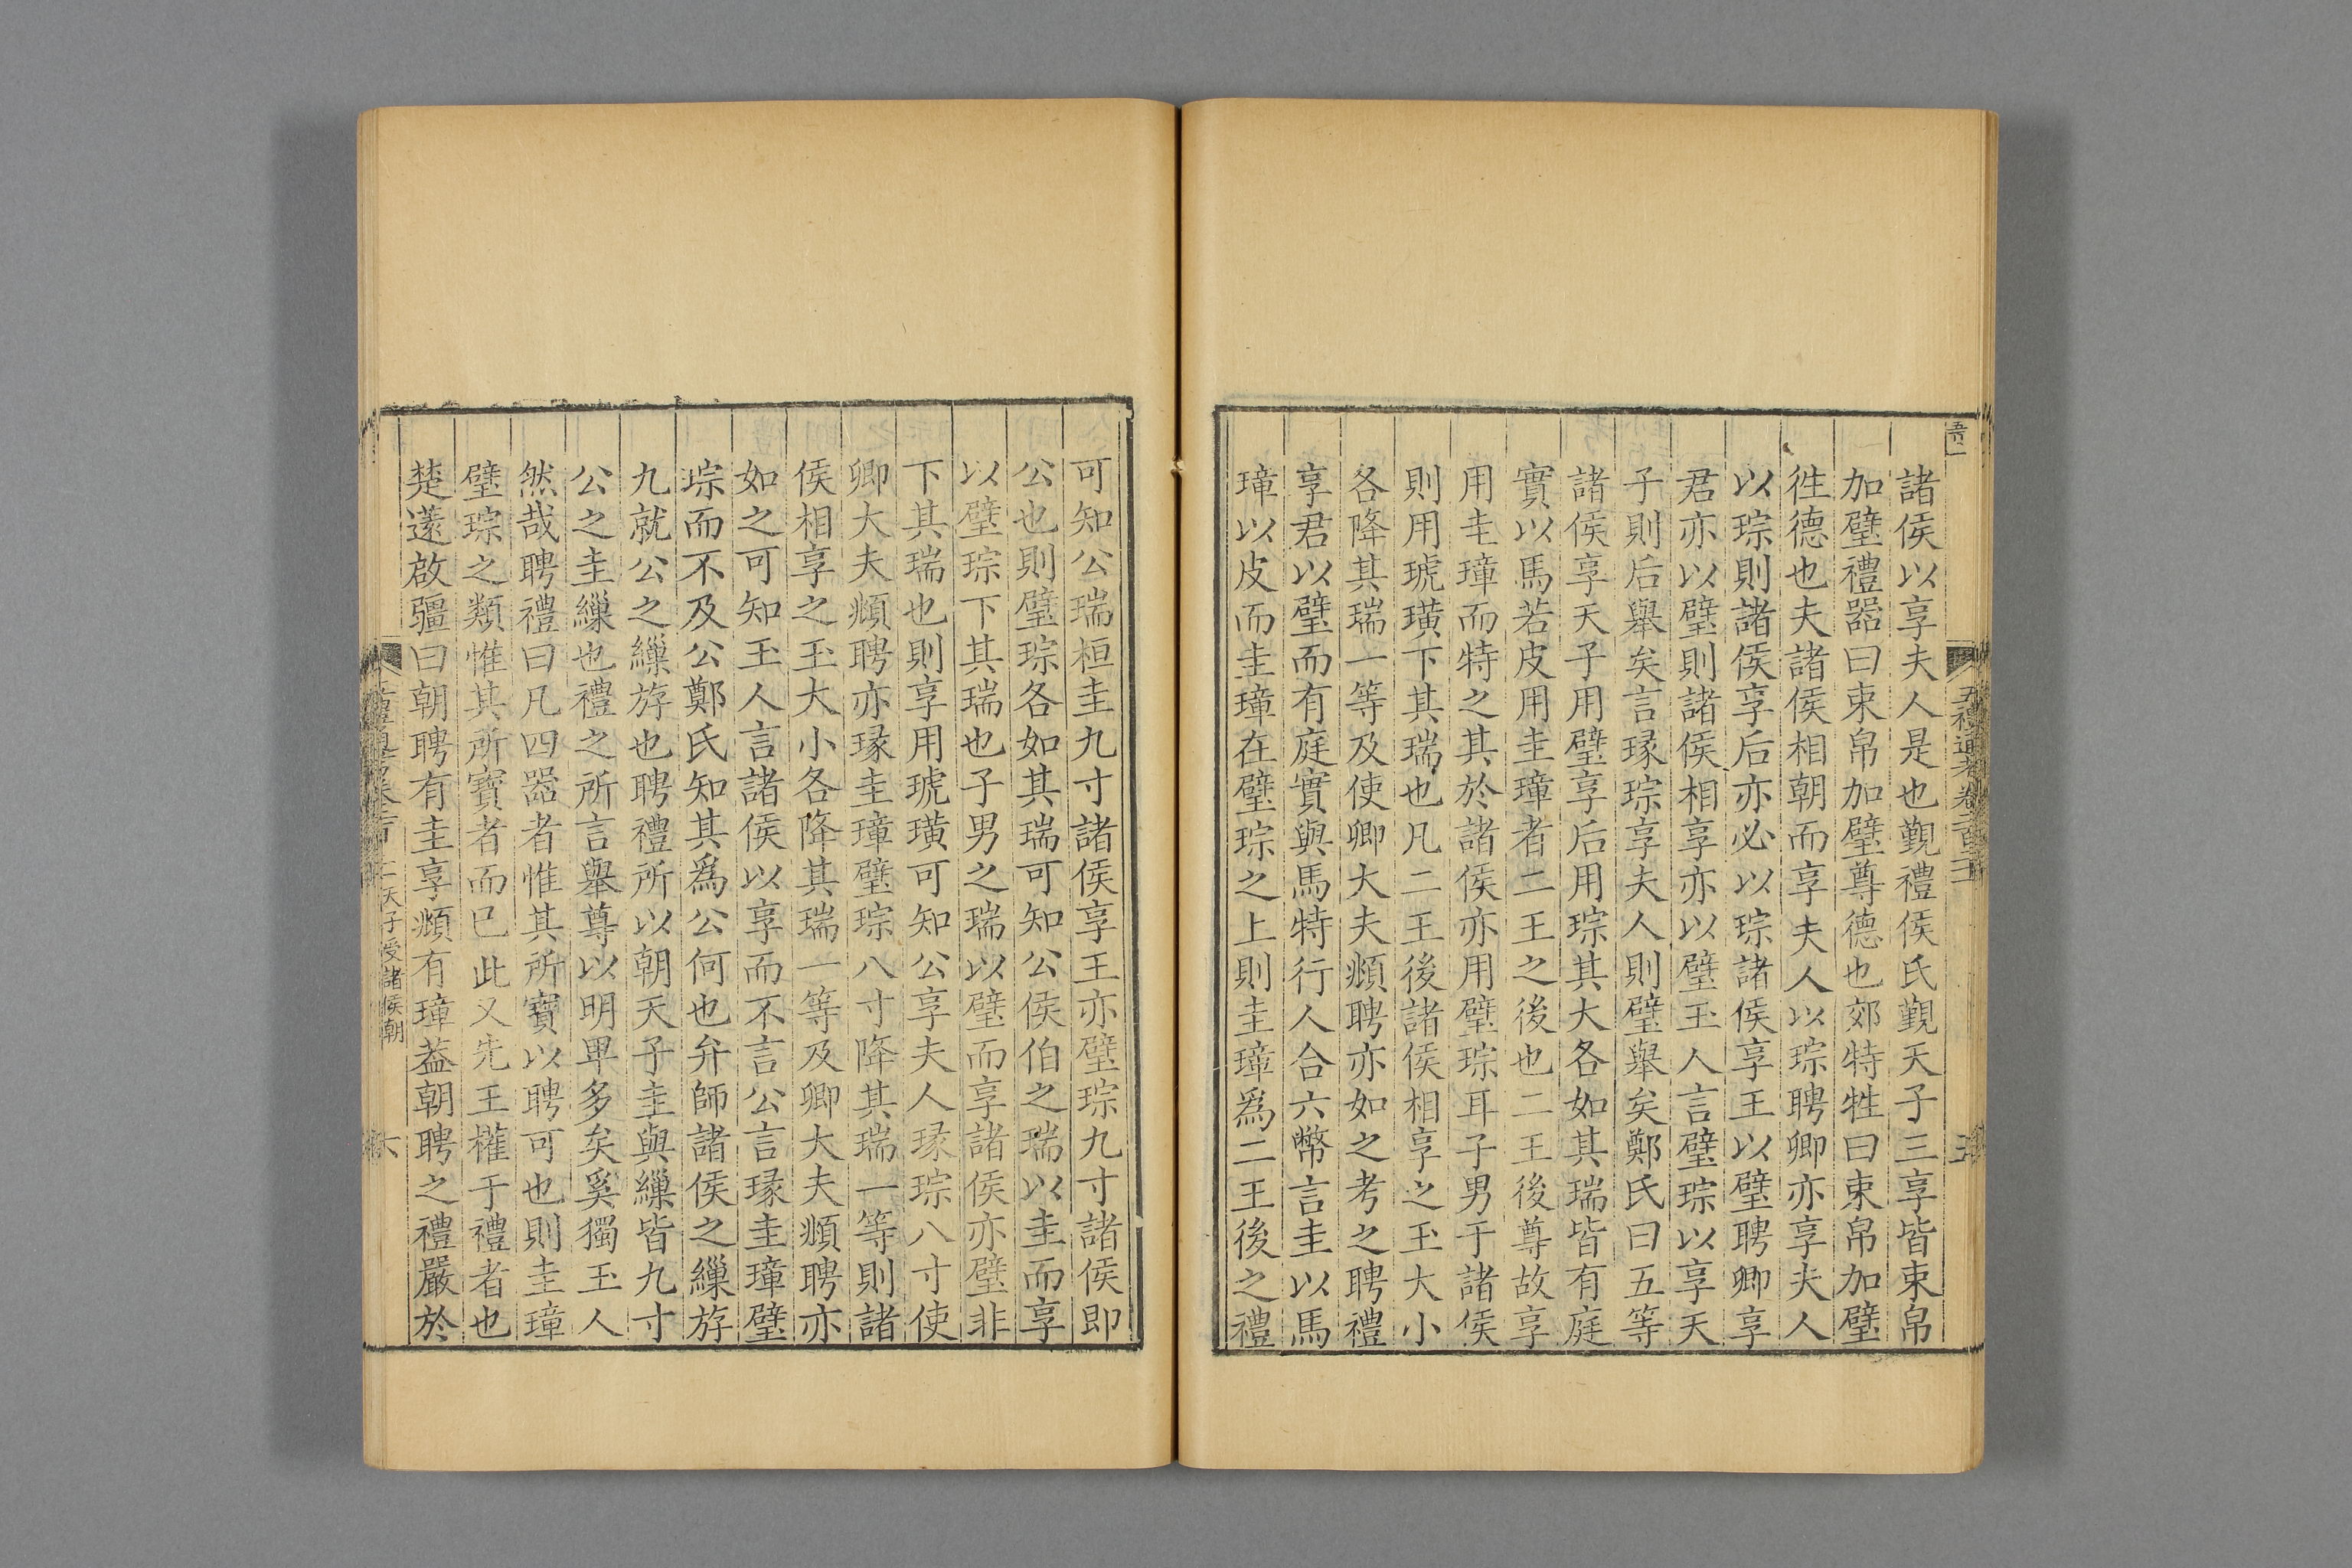 諸侯以享夫人是也覲禮侯氏覲天子三享皆束帛
加璧禮器曰束帛加璧尊德也郊特牲曰束帛加璧
徃德也夫諸侯相朝而享夫人以琮聘卿亦享夫人
以琮則諸侯享后亦必以琮諸侯享王以璧聘卿享
君亦以璧則諸侯相享亦以璧玉人言璧琮以享天
子則后舉矣言瑑琮享夫人則璧舉矣鄭氏曰五等
諸侯享天子用璧享后用琮其大各如其瑞皆有庭
實以馬若皮用圭璋者二王之後也二王後尊故享
用圭璋而特之其於諸侯亦用璧琮耳子男于諸侯
則用琥璜下其瑞也凡二王後諸侯相享之玉大小
各降其瑞一等及使卿大夫頫聘亦如之考之聘禮
享君以璧而有庭實與馬特行人合六幣言圭以馬
璋以皮而圭璋在璧琮之上則圭璋爲二王後之禮
五禮通考卷二百二十
五
可知公瑞桓圭九寸諸侯享王亦璧琮九寸諸侯即
公也則璧琮各如其瑞可知公侯伯之瑞以圭而享
以璧琮下其瑞也子男之瑞以璧而享諸侯亦璧非
下其瑞也則享用琥璜可知公享夫人瑑琮八寸使
卿大夫頫聘亦瑑圭璋璧琮八寸降其瑞一等則諸
侯相享之玉大小各降其瑞一等及卿大夫頫聘亦
如之可知玉人言諸侯以享而不言公言瑑圭璋璧
琮而不及公鄭氏知其爲公何也弁師諸侯之繅斿
九就公之繅斿也聘禮所以朝天子圭與繅皆九寸
公之圭繅也禮之所言舉尊以明卑多矣奚獨玉人
然哉聘禮曰凡四器者惟其所寶以聘可也則圭璋
璧琮之類惟其所寶者而已此又先王權于禮者也
楚薳啟疆曰朝聘有圭享頫有璋葢朝聘之禮嚴於
天子受諸侯朝
六